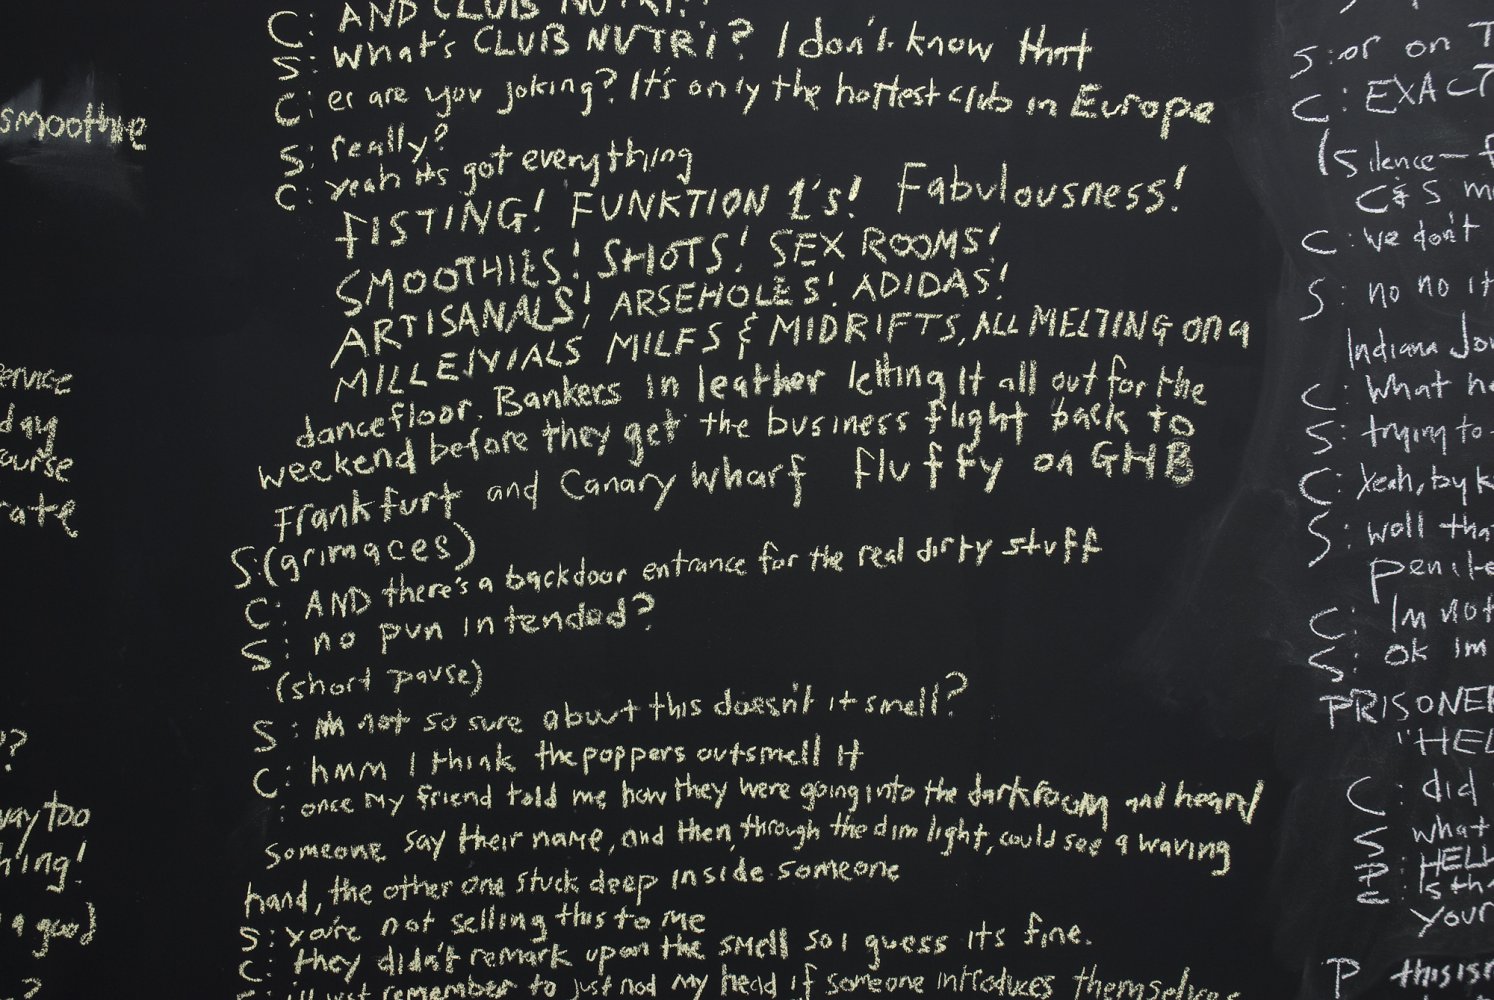 smoothie
ervice
day
ourse
rate
?
way too
hing!
a good
?
C: AND CLUB NUTRI??
S: What's CLUB NUTRI? I don't know that
C: er are you joking? It's only the hottest club in Europe
S: really?
C: yeah its got everything
FISTING! FUNKTION 1's! Fabulousness!
SMOOTHIES! SHOTS! SEX ROOMS!
ARTISANALS! ARSEHOLES! ADIDAS!
MILLENIALS MILFS & MIDRIFTS, ALL MELTING on a
dancefloor. Bankers in leather letting it all out for the
weekend before they get the business flight back to
Frankfurt and Canary Wharf fluffy on GHB
S: (grimaces)
C: AND there's a backdoor entrance for the real dirty stuff
S: no pun intended?
(short pause)
S: im not so sure about this doesn't it smell?
C: hmm I think the poppers outsmell it
: once my friend told me how they were going into the darkroom and heard
someone say their name, and then, through the dim light, could see a waving
hand, the other one stuck deep inside someone
S: you're not selling this to me
C: they didn't remark upon the smell so I guess its fine.
S: ill just remember to just nod my head if someone introduces themselves
S: or on T
C: EXACT
(Silence - f
C & S m
C: We don't
S: no no it
Indiana Jo
C: What he
S: trying to
C: Yeah, by k
S: well tha
penite
C: Im not
S: Ok im
PRISONER
"HEL
C: did
S: what
P: HELL
C: Is th
your
P this is